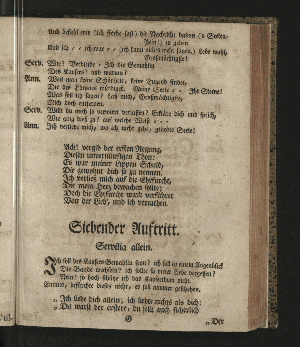 Und befahl mir (ich sterbe fast) die Nachricht davon (o Seelen-
Pein!) zu geben.
Und ich = = ich war = = (ich kann nichts mehr sagen.) Lebe wohl,
Großmächtigste!
Serv. Wie? Verbinde = Ich die Gemahlin
Des Kaisers? und warum?
Ann. Weil man keine Schönheit, keine Tugend findet,
Die des Thrones würdiger. Meine Seele = = Ihr Sterne!
Was soll ich sagen? Laß mich, Großmächtigste,
Mich doch entfernen.
Serv. Willt du mich so verwirrt verlassen? Erkläre dich und sprich,
Wie ging dieß zu? auf welche Weise = =
Ann. Ich verliere mich, wo ich mehr gehe, geliebte Seele!
Ach! vergib der ersten Regung,
Diesen unvernünftigen Thon:
Es war meiner Lippen Schuld,
Die gewohnt dich so zu nennen.
Ich verließ mich auf die Ehrfurcht,
Die mein Herz bewachen sollte;
Doch die Ehrfurcht ward verführet
Von der Lieb', und ich verrathen.
Siebender Auftritt.
Servilia allein.
Ich soll des Kaisers Gemahlin seyn? ich soll in einem Augenblick
Die Bande wechseln? ich sollte so treue Liebe vergessen?
Nein! so hoch schätze ich das Kaiserthum nicht.
Annius, befürchte dieses nicht, es soll nimmer geschehen.
„ Ich liebe dich allein; ich liebte nichts als dich:
„ Du warst der erstere; du sollt auch sicherlich
G
„ Der